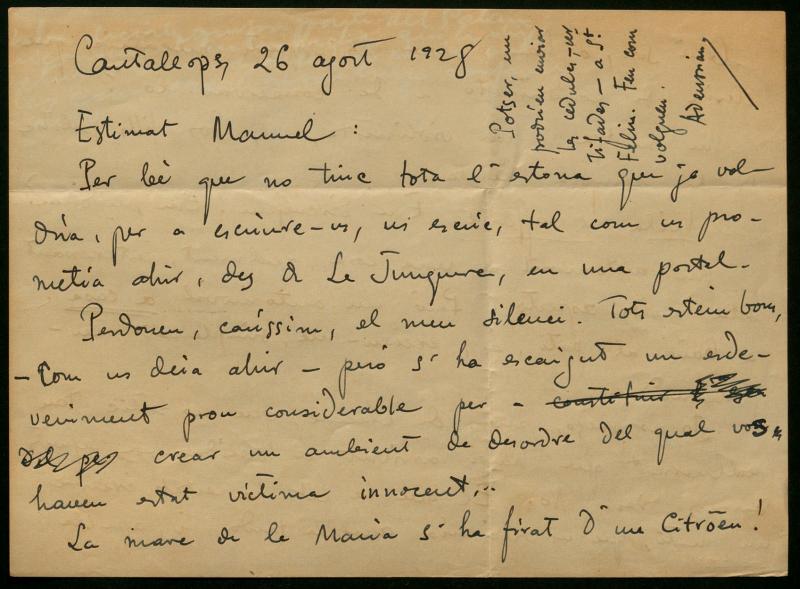 Cantallops, 26 agost 1928
Estimat Manuel:
Per bé que no tinc tota l'estona que ja vol-
dria, per a escriure-us, us escric, tal com us pro-
metia ahir, des de La Junquera, en una postal.
Perdoneu, caríssim, el meu silenci. Tots estem bons,
- Com us deia ahir - però s'ha escaigut un esde-
veniment prou considerable per a
crear un ambient de desordre del qual vos,
haveu estat víctima innocent...
La mare de la Maria s'ha firat d'un Citröen!
Potser, em
podríeu enviar
les cèdules
a St.
Feliu. Feu com
volgueu.
Adeussiau,